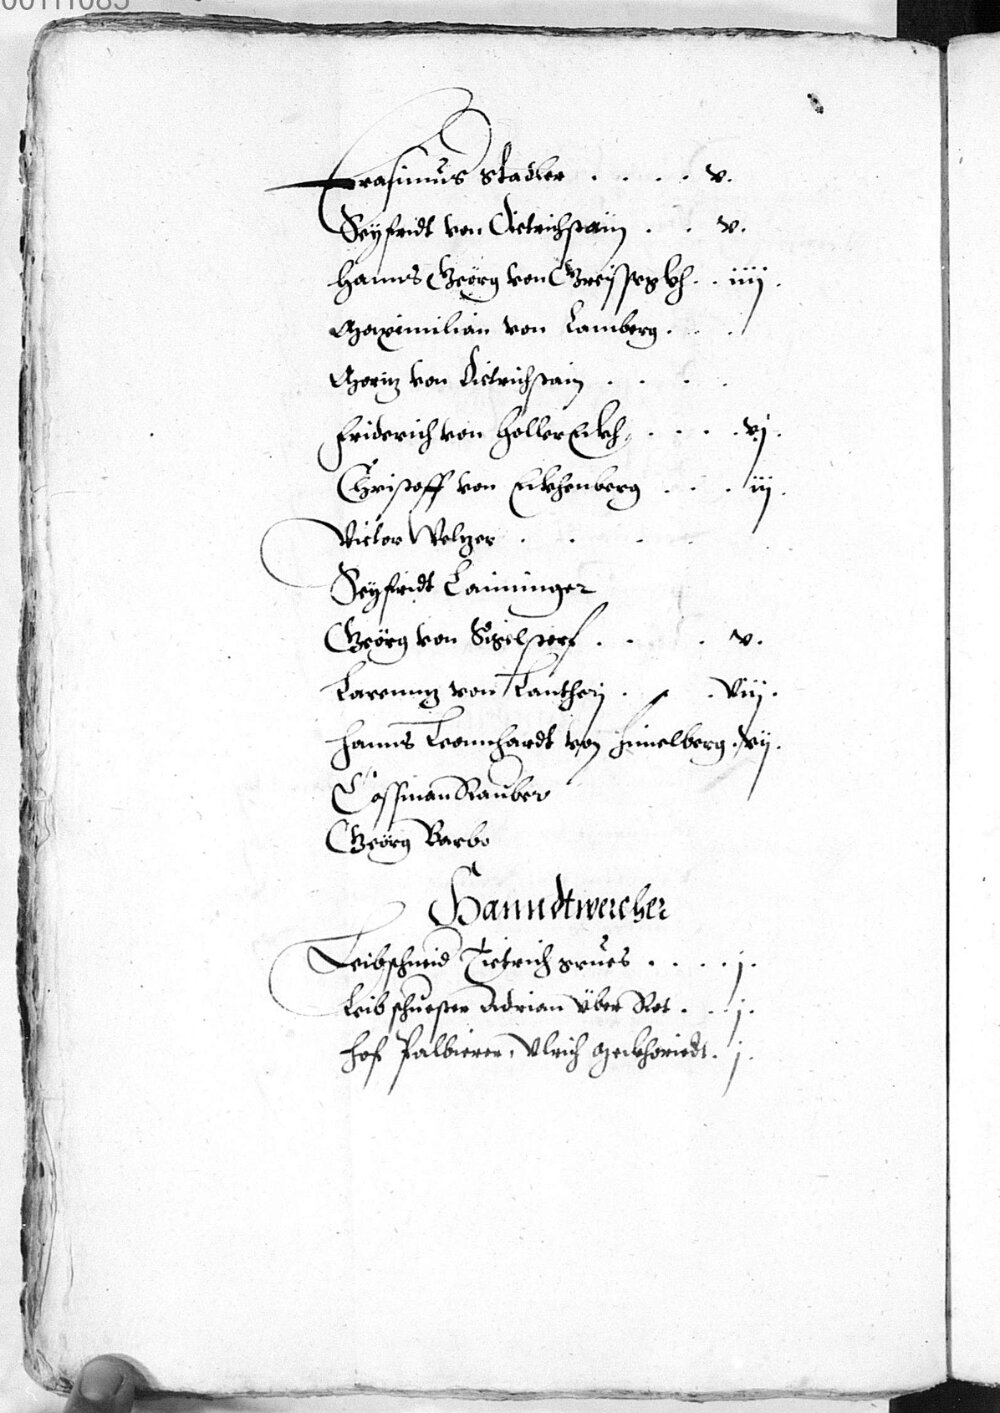 00111085
Erasimus Stadler . . . . v.
Seyfridt von Dietrichstain . . v.
Hanns Georg von Greissegkh . . iiij.
Maximilian von Lamberg . . .
Moritz von Dietrichstain . . . .
Friderich von HollerEckh . . . . vj.
Christoff von Eckhenberg . . . iij.
Victor Weltzer . . . .
Seyfridt Laininger
Georg von Sigelstorf . . . v.
Larenntz von Lanthery . . . viij.
Hanns Leonnhardt von Himelberg . vij.
Cossman Rauber
Georg Barbo
Hanndtwercher
Leibschneid Dietrich prues . . . . j.
Leib schuester Adrian Über Rot . . j.
Hof Palbierer, Ulrich . j.